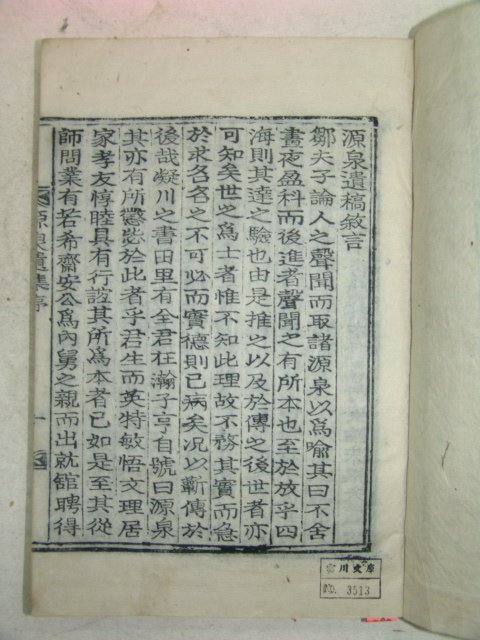 源泉遺稿敘言
鄒夫子論人之聲聞而取諸源泉以為喩其曰不舍
晝夜盈科而後進者聲聞之有所本也至於放乎四
海則其達之驗也由是推之以及於傳之後世者亦
可知矣世之為士者惟不知此理故不務其實而急
於求名名之不可必而實德則已病矣况以蘄傳於
後哉凝川之書田里有全君在瀚子亨自號曰源泉
其亦有所懲毖於此者乎君生而英特敏悟文理居
家孝友惇睦具有行誼其所為本者已如是至其從
師問業有若希齋安公為內舅之親而出就舘聘得
源泉遺集序
一
NO. 3513